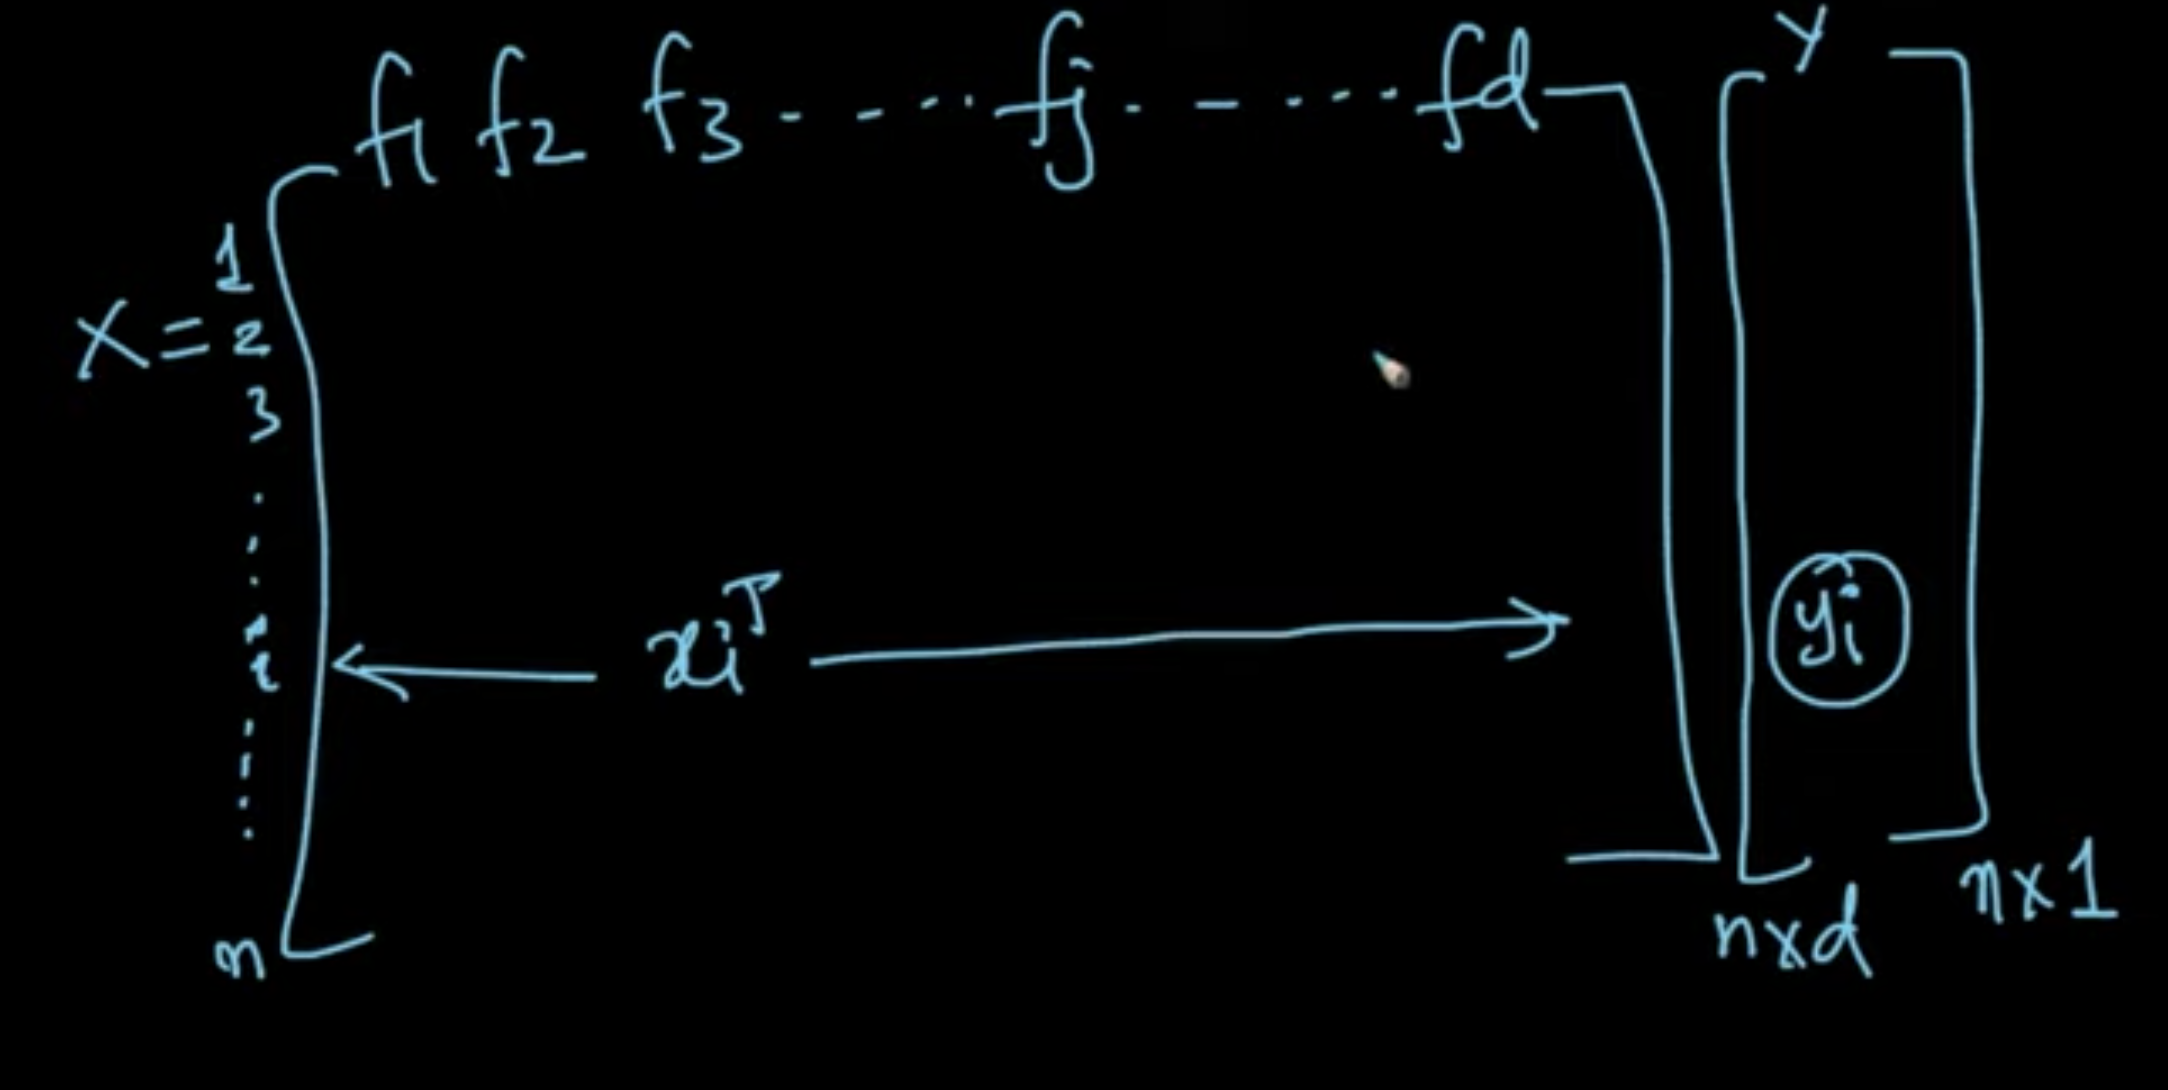 f1 f2 f3 - - - - fj - - - - - fd Y
1
X = 2
3
i xiᵀ yi
n
n×d n×1